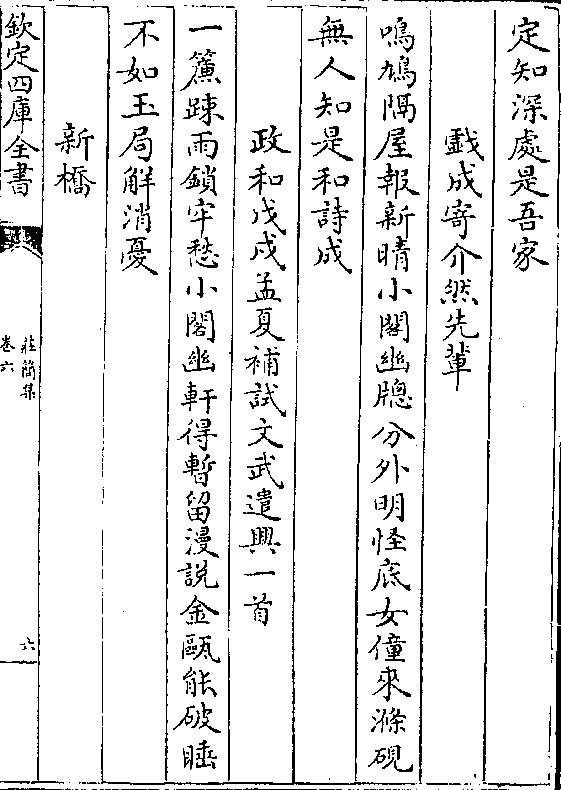 定知深處是吾家
戯成寄介然先輩
鳴鳩隔屋報新晴小閣幽牕分外明怪底女僮來滌硯
無人知是和詩成
政和戊戌孟夏補試文武遣興一首
一簾踈雨鎖牢愁小閣幽軒得暫留漫說金甌能破睡
不如玉局解消憂
新橋
欽定四庫全書
莊簡集
卷六
六